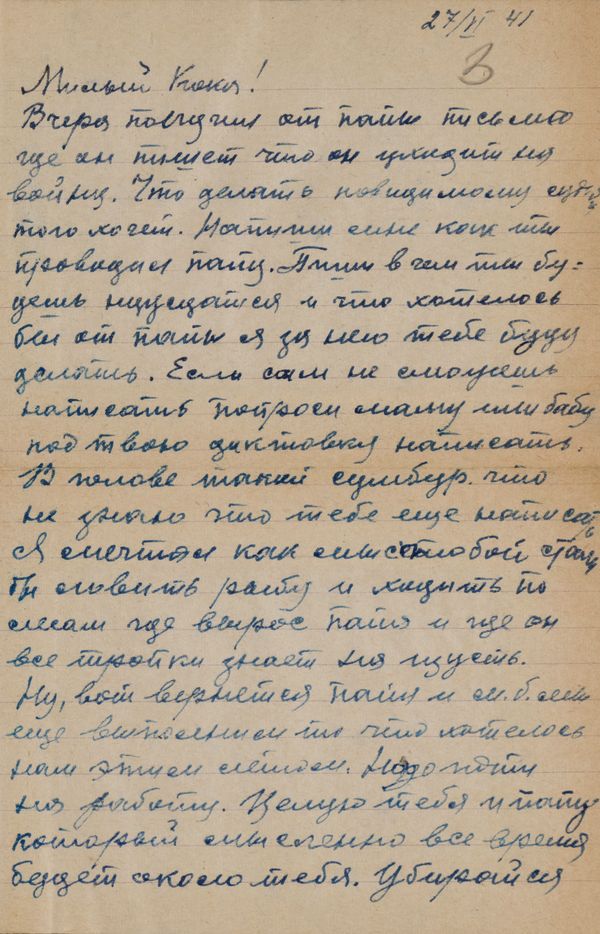 27/VI 41
3
Милый Кока!
Вчера получил от папы письмо
где он пишет что он уходит на
войну. Что делать повидимому судьба
того хочет. Напиши мне как ты
проводил папу. Пиши в чем ты бу=
дешь нуждаться и что хотелось
бы от папы я за него тебе буду
делать. Если сам не сможешь
написать попроси маму или бабу
под твою диктовку написать.
В голове такой сумбур что
не знаю что тебе еще написать
Я мечтал как мы с тобой
бы ловить рыбу и ходить по
лесам где вырос папа и где он
все тропки знает на изусть.
Ну, вот вернется папа и м.б. мы
еще выполним то что хотелось
нам этим летом. Надо идти
на работу. Целую тебя и папу
который мысленно все время
будет около тебя. Убирайся